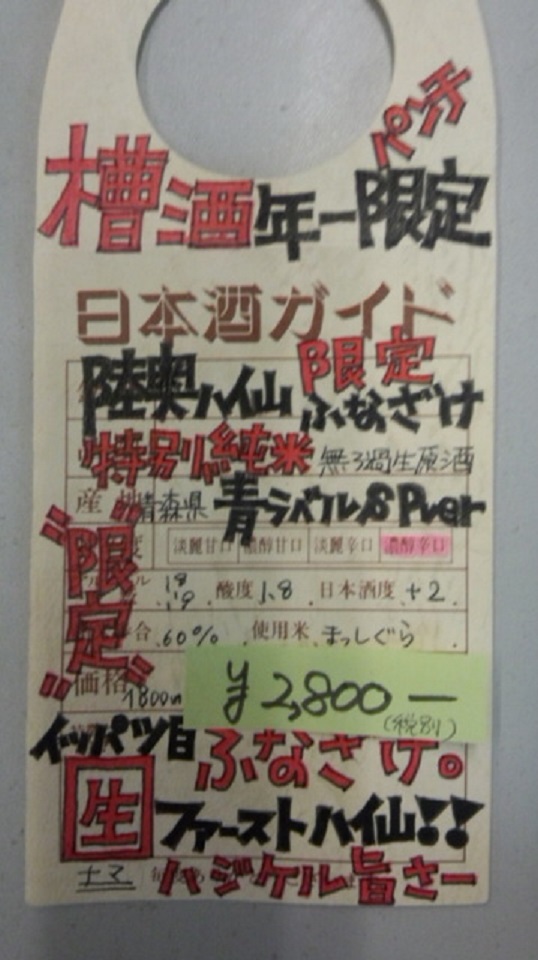 パンチ
槽酒年一限定
日本酒ガイド
限定
陸奥ハイ山 ふなざけ
特別純米 無ろ過生原酒
産 青森県 青ラベル
淡麗甘口 濃醇甘口 淡麗辛口 濃醇辛口
18 酸度 1.8 日本酒度 +2
19
"限定"
合 60% 使用米 まっしぐら
価格 1800
¥2,800—
(税別)
イッパツ目 ふなざけ。
生 ファーストハイ山!!
ハジケル旨さー